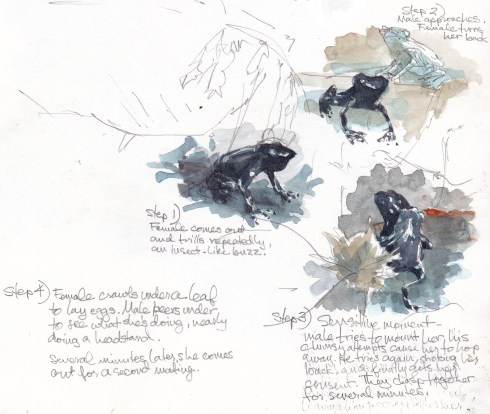 Step 1)
Female comes out
and trills repeatedly,
an insect-like buzz.
Step 2)
Male approaches.
Female turns
her back
Step 3) Sensitive moment-
male tries to mount her, his
clumsy attempts cause her to hop
away. He tries again, stroking his
back, and finally gets her
consent. They clasp together
for several minutes.
Step 4) Female crawls under a leaf
to lay eggs. Male peers under
to see what she's doing, nearly
doing a headstand.
Several minutes later, she comes
out for a second mating.